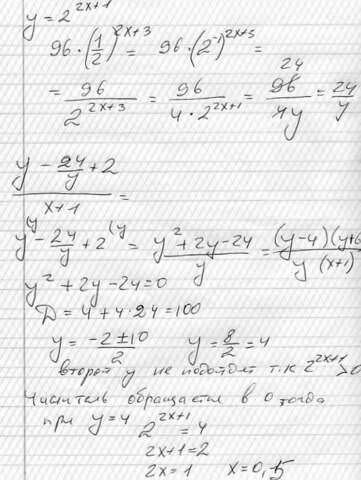 y = 2^{2x+1}
96·(1/2)^{2x+3} = 96·(2^{-1})^{2x+3} =
= 96/2^{2x+3} = 96/(4·2^{2x+1}) = 96/4y = 24/y
24
(y - 24/y + 2)/(x+1) =
y - 24/y + 2 = (y² + 2y - 24)/y = (y-4)(y+6)/y(x+1)
y² + 2y - 24 = 0
D = 4 + 4·24 = 100
y = (-2 ± 10)/2 y = 8/2 = 4
второй y не подойдет т.к 2^{2x+1} > 0
Числитель обращается в 0 тогда
при y = 4 2^{2x+1} = 4
2x+1 = 2
2x = 1 x = 0,5